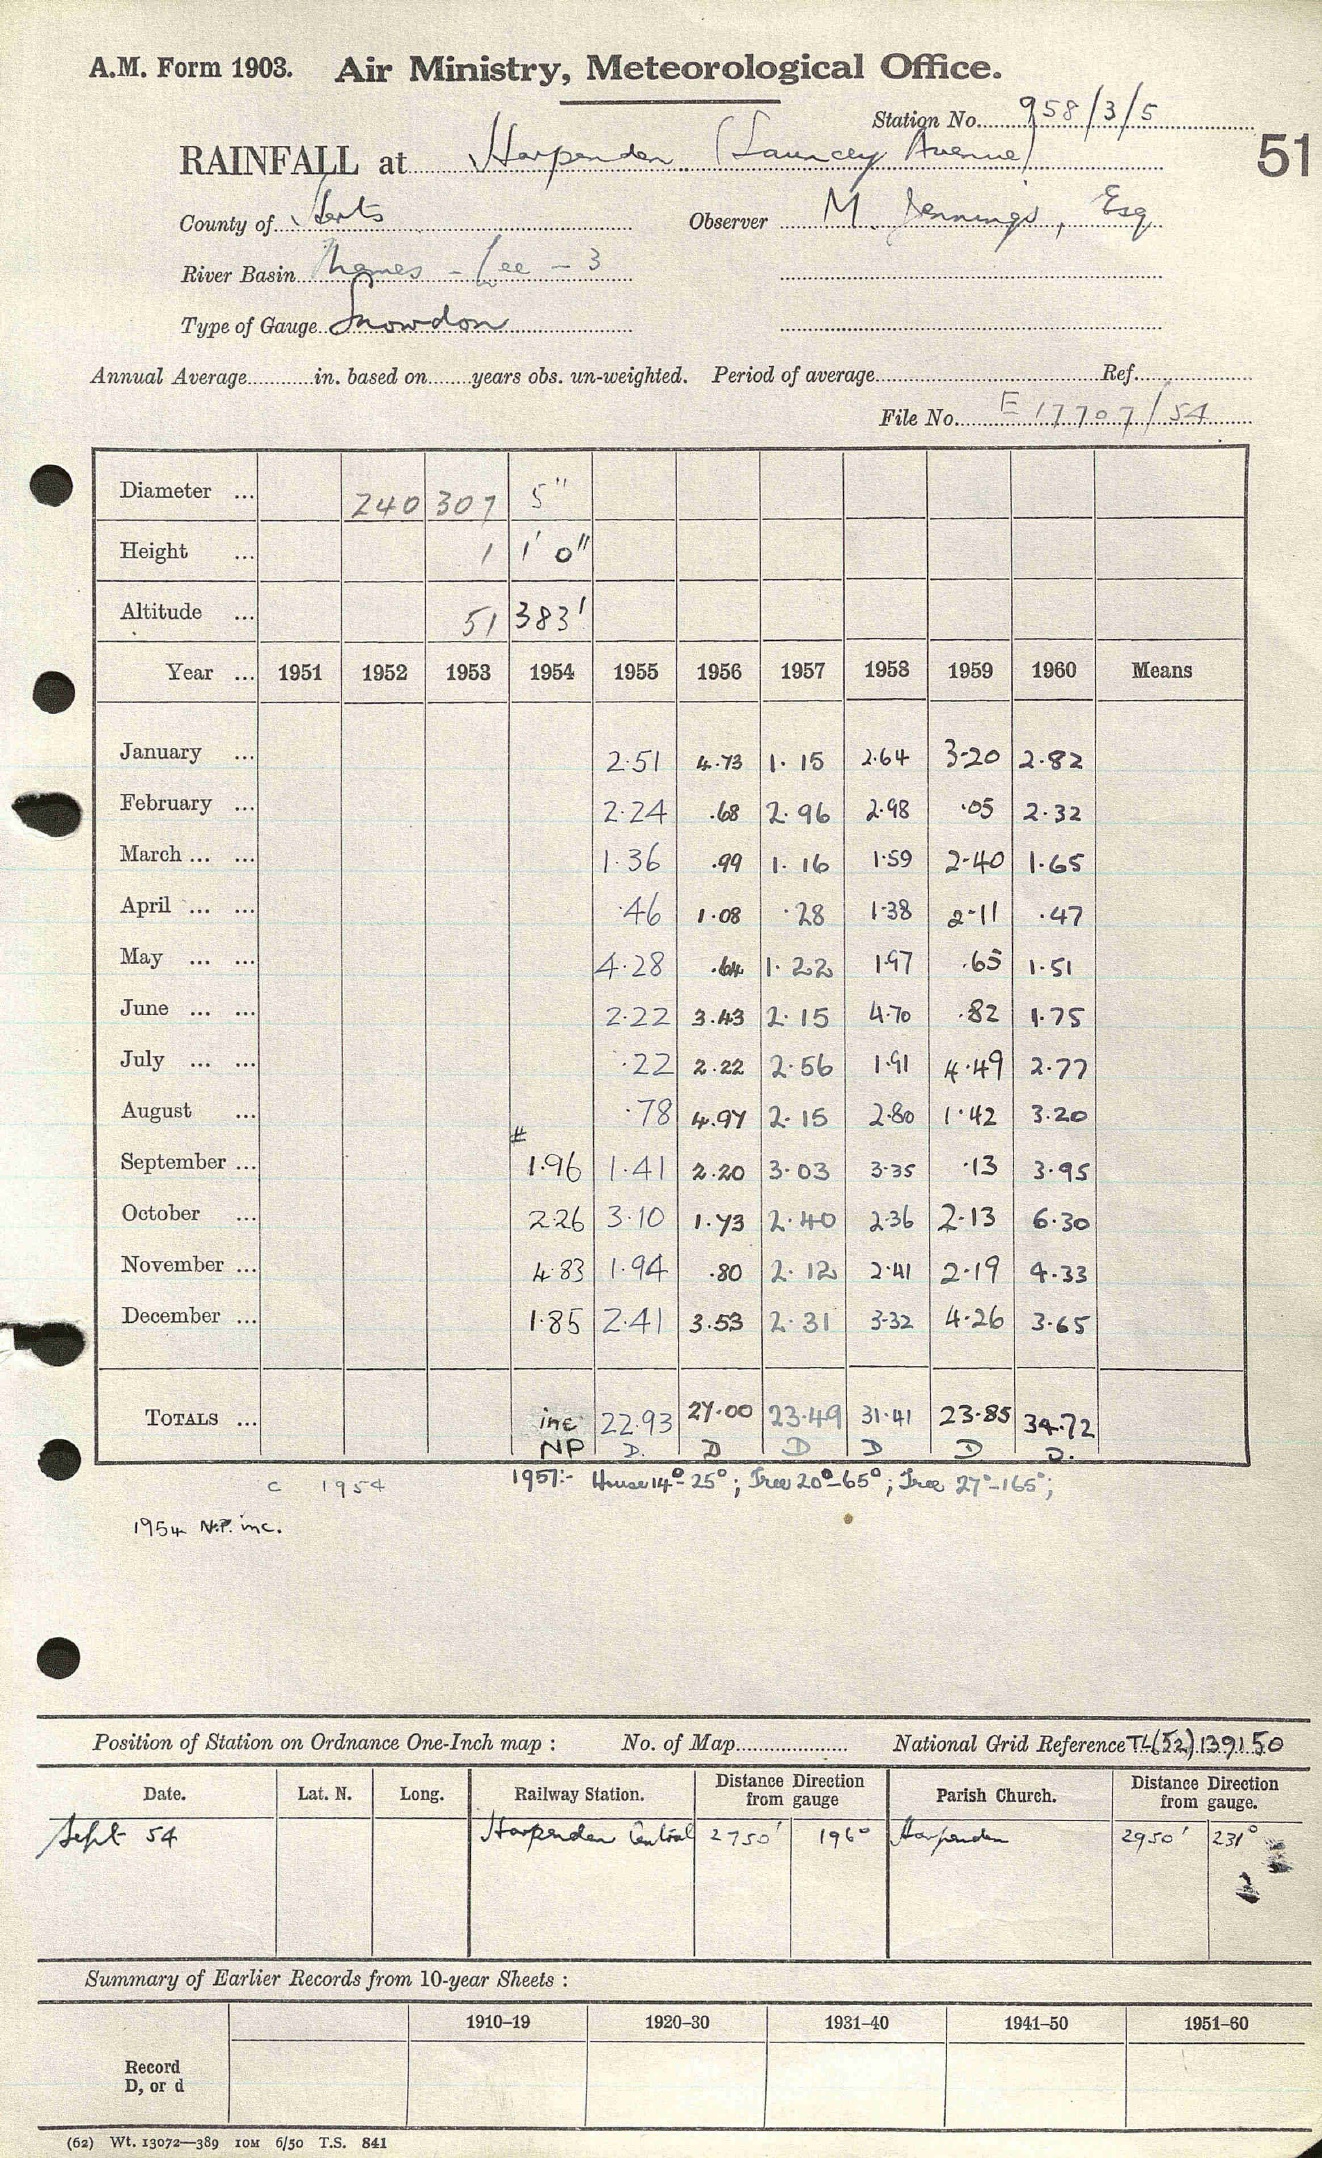 A.M. Form 1903. Air Ministry, Meteorological Office.
Station No. 958/3/5
RAINFALL at Harpenden (Launcey Avenue)
51
County of Herts Observer M. Jennings, Esq
River Basin Thames - Lee - 3
Type of Gauge Snowdon
Annual Average in. based on years obs. un-weighted. Period of average Ref.
File No. E 17707/54
Diameter ... 240 307 5"
Height ... 1 1' 0"
Altitude ... 51 383'
Year ... 1951 1952 1953 1954 1955 1956 1957 1958 1959 1960 Means
January ... 2.51 4.73 1.15 2.64 3.20 2.82
February ... 2.24 .68 2.96 2.98 .05 2.32
March ... ... 1.36 .99 1.16 1.59 2.40 1.65
April ... ... .46 1.08 .28 1.38 2.11 .47
May ... ... 4.28 .64 1.22 1.97 .65 1.51
June ... ... 2.22 3.43 2.15 4.70 .82 1.75
July ... ... .22 2.22 2.56 1.91 4.49 2.77
August ... .78 4.97 2.15 2.80 1.42 3.20
#
September ... 1.96 1.41 2.20 3.03 3.35 .13 3.95
October ... 2.26 3.10 1.73 2.40 2.36 2.13 6.30
November ... 4.83 1.94 .80 2.12 2.41 2.19 4.33
December ... 1.85 2.41 3.53 2.31 3.32 4.26 3.65
TOTALS ... inc 22.93 27.00 23.49 31.41 23.85 34.72
NP D. D D D D D.
c 1954 1957:- House 14°-25°; Tree 20°-65°; Tree 27°-165°;
1954 N.P. inc.
Position of Station on Ordnance One-Inch map : No. of Map National Grid Reference TL(52)139150
Date. Lat. N. Long. Railway Station. Distance Direction from gauge Parish Church. Distance Direction from gauge.
Sept 54 Harpenden Central 2750' 196° Harpenden 2950' 231°
Summary of Earlier Records from 10-year Sheets :
1910–19 1920–30 1931–40 1941–50 1951–60
Record
D, or d
(62) Wt. 13072—389 10M 6/50 T.S. 841